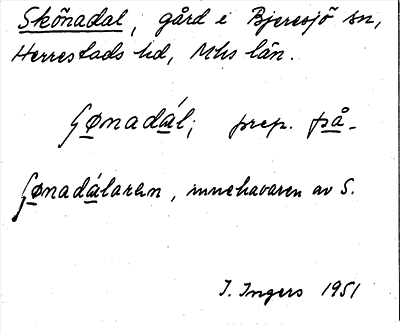 Skönadal, gård i Bjeresjö sn,
Herrestads hd, Mhs län.
ʃønadál; prep. på.
ʃønadálaren, innehavaren av S.
I. Ingers 1951